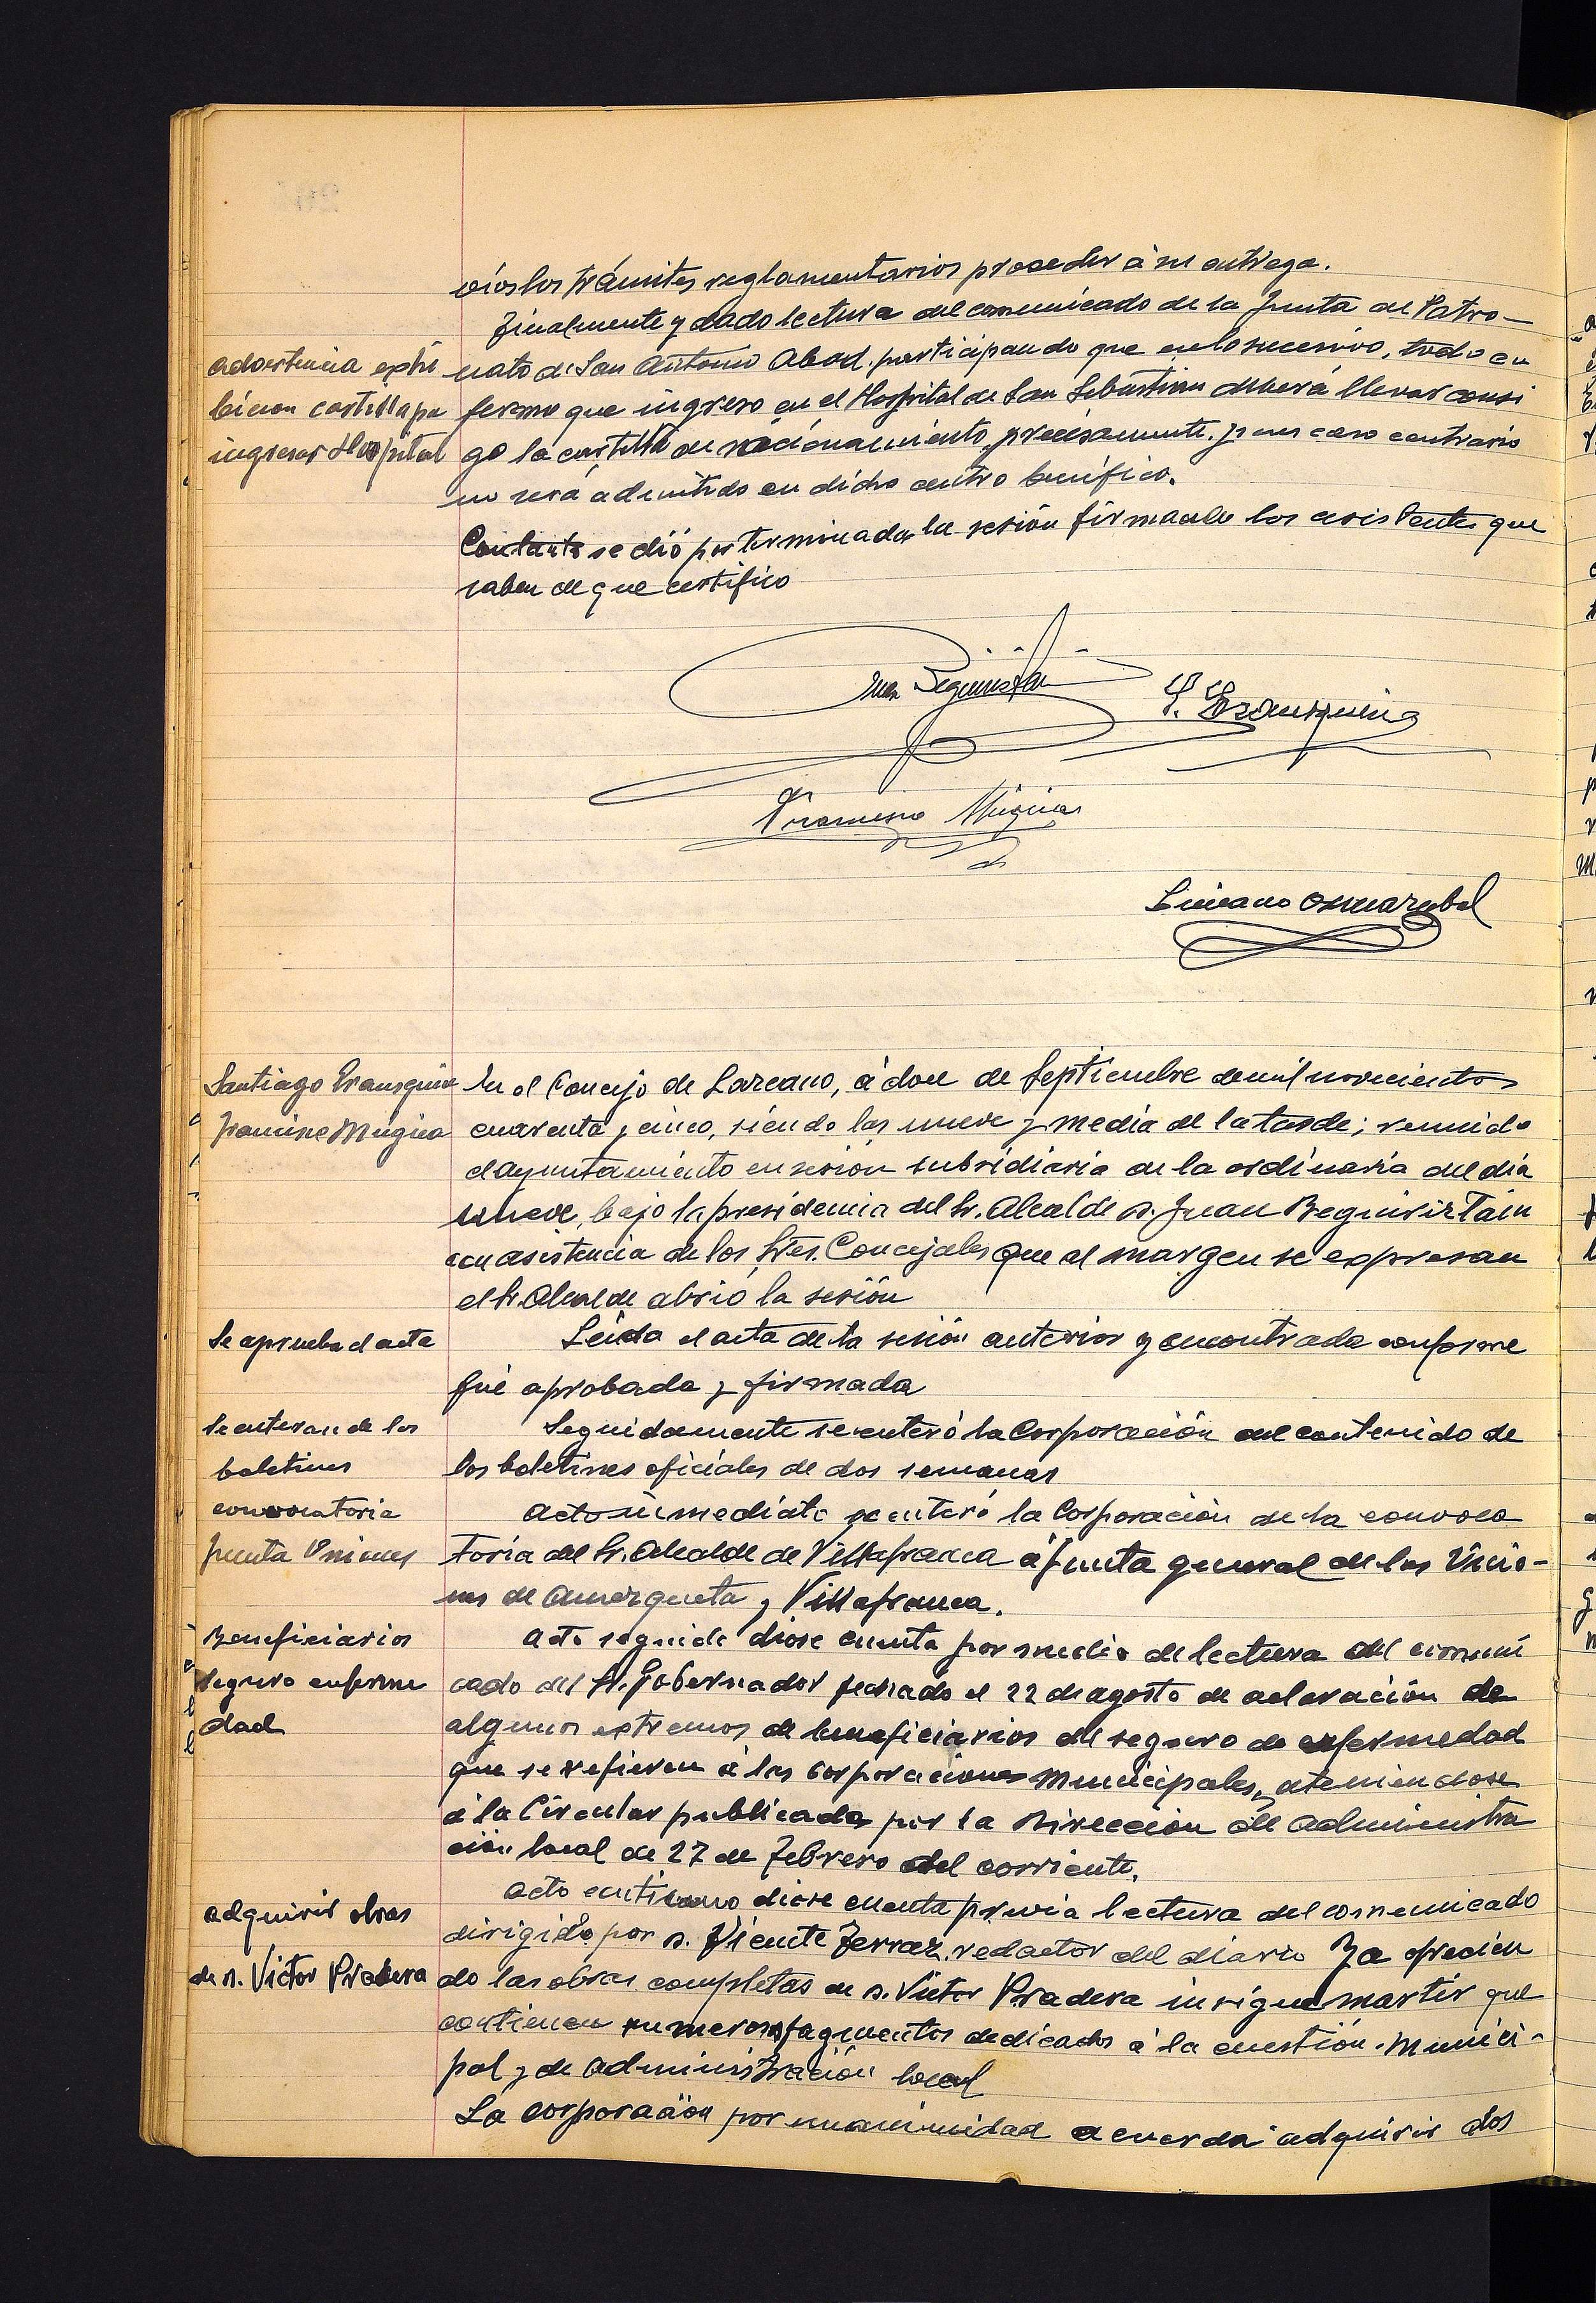 vios los trámites reglamentarios proceder á su entrega.
Finalmente y dado lectura del comunicado de la Junta de Patro-
advertencia exhi
nato de San Antonio Abad participando que en lo sucesivo, todo en
bicion cartilla pa
fermo que ingrese en el Hospital de San Sebastian deberá llevar consi
ingresar Hospital
go la cartilla de racionamiento precisamente, pues caso contrario
no será admitido en dicho centro benéfico.
Con tanto se dió por terminada la sesión firmando los asistentes que
saben de que certifico
Juan Beguiristain
S. Erausquin
Francisco Mugica
Luciano
Santiago Erausquin
En el Concejo de Lazcano, á doce de Septiembre de mil novecientos
Francisco Mugica
cuarenta y cinco, siendo las nueve y media de la tarde; reunido
el ayuntamiento en sesion subsidiaria de la ordinaria del dia
nueve, bajo la presidencia del Sr. Alcalde D. Juan Beguiristain
con asistencia de los Sres. Concejales que al margen se expresan
el Sr. Alcalde abrió la sesión
Se aprueba el acta
Leida el acta de la sesión anterior y encontrada conforme
fué aprobada y firmada
Se enteran de los
Seguidamente se enteró la Corporación del contenido de
boletines
los boletines oficiales de dos semanas
convocatoria
Acto inmediato se enteró la Corporación de la convoca
Junta Uniones
toria del Sr. Alcalde de Villafranca á Junta general de las Unio-
nes de Amezqueta y Villafranca.
Beneficiarios
Acto seguido diose cuenta por medio de lectura del comuni
seguro enferme
cado del Sr. Gobernador fechado el 22 de agosto de aclaración de
dad
algunos extremos de beneficiarios del seguro de enfermedad
que se refieren á las corporaciones municipales, ateniendose
á la Circular publicada por la Dirección de Administra
ción local de 27 de Febrero del corriente.
adquirir obras
Acto continuo diose cuenta previa lectura del comunicado
dirigido por D. Vicente Ferraz, redactor del diario Ya ofrecien
de D. Victor Pradera
do las obras completas de D. Victor Pradera insigne martir que
contienen numerosos fagmentos dedicados á la cuestión munici-
pal y de administración local
La corporación por unanimidad acuerda adquirir dos